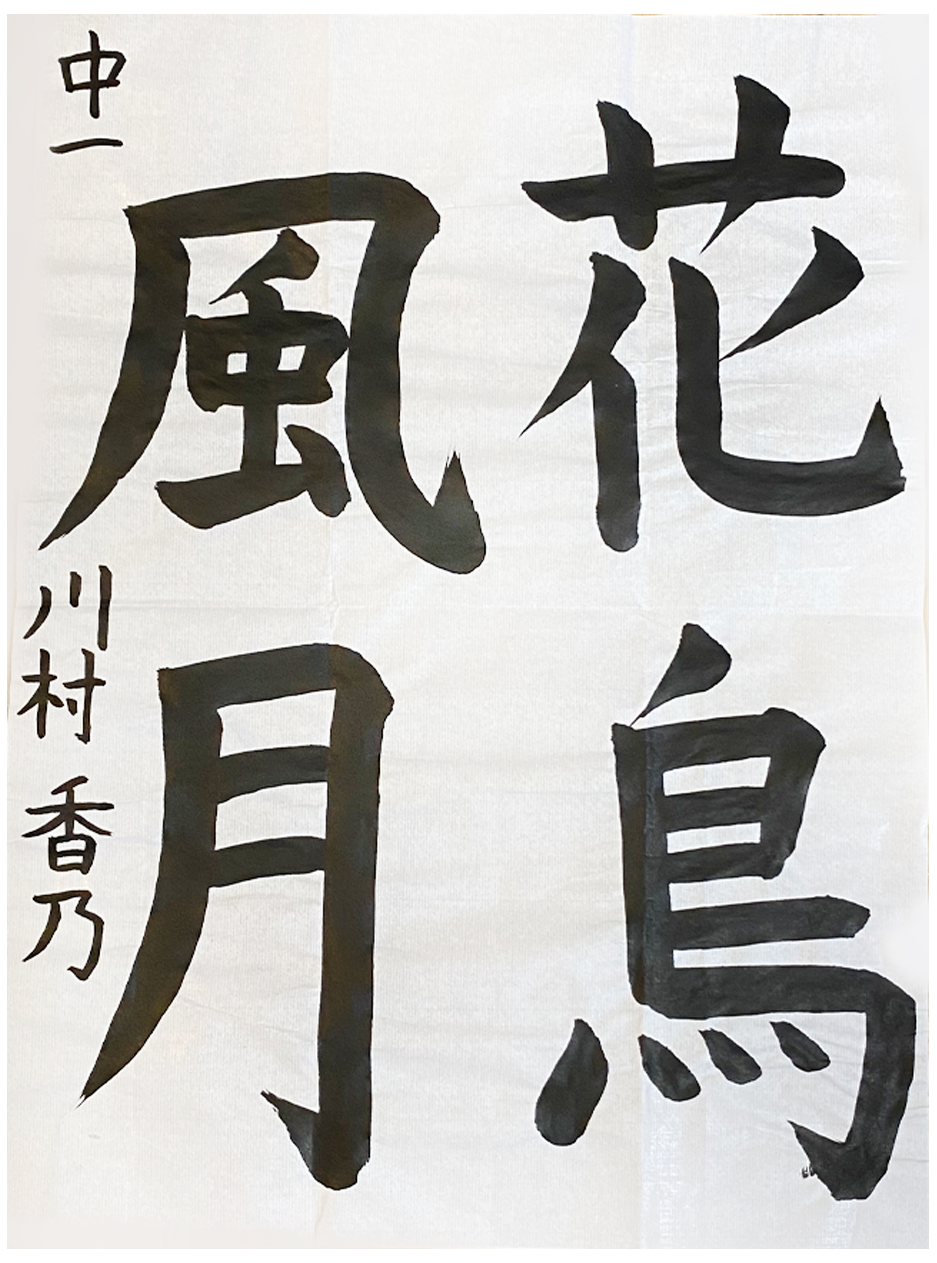 花鳥
風月
中一 川村 香乃